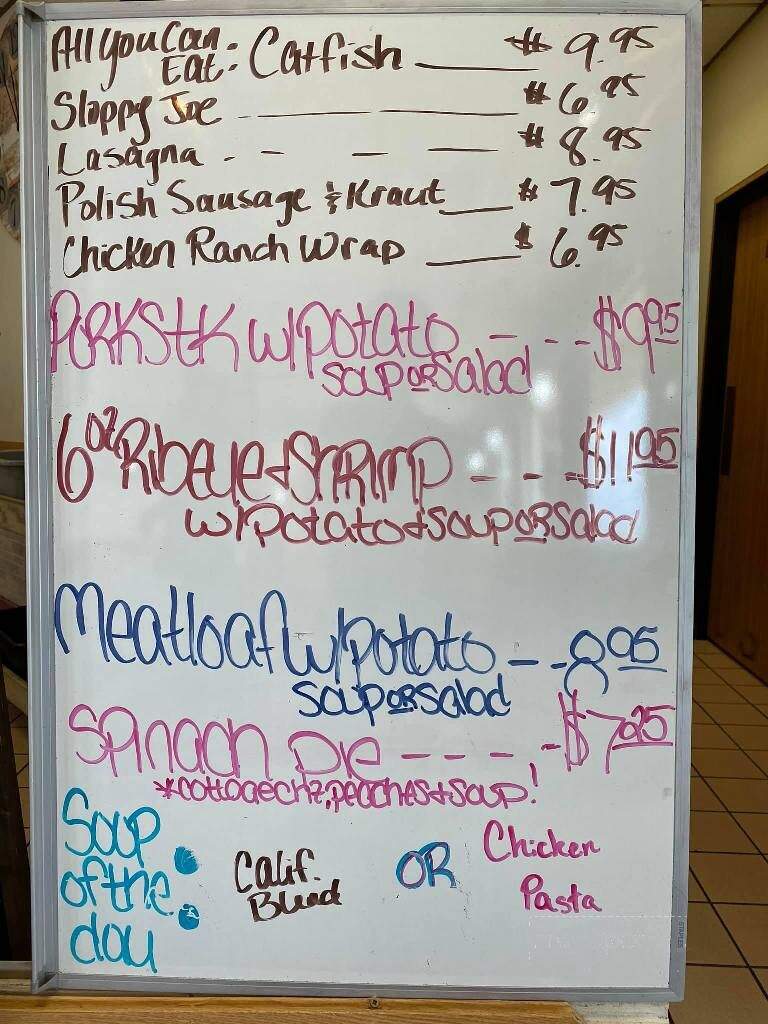 All You Can Eat: Catfish ____ $9.95
Sloppy Joe - ____ $6.95
Lasagna - - - — $8.95
Polish Sausage & Kraut ___ $7.95
Chicken Ranch Wrap ____ $6.95
PORK Stk w/potato - - - $9.95
Soup OR Salad
6oz Ribeye + Shrimp - - - $11.95
w/Potato + Soup OR Salad
Meatloaf w/potato - - 8.95
Soup OR Salad
Spinach pie - - - - - $7.25
*cottagechz, peaches + soup!
Soup of the day : Calif. Blend OR Chicken Pasta